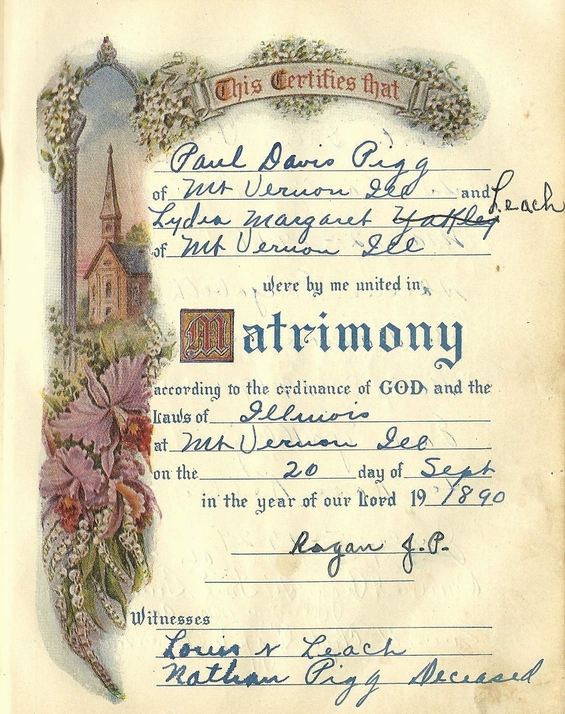 This Certifies that
Paul Davis Pigg
of Mt Vernon Ill and Leach
Lydia Margaret Yakley
of Mt Vernon Ill
were by me united in
Matrimony
according to the ordinance of GOD and the
Laws of Illinois
at Mt Vernon Ill
on the 20 day of Sept
in the year of our Lord 19 1890
Ragan J.P.
Witnesses
Louis N Leach
Nathan Pigg Deceased